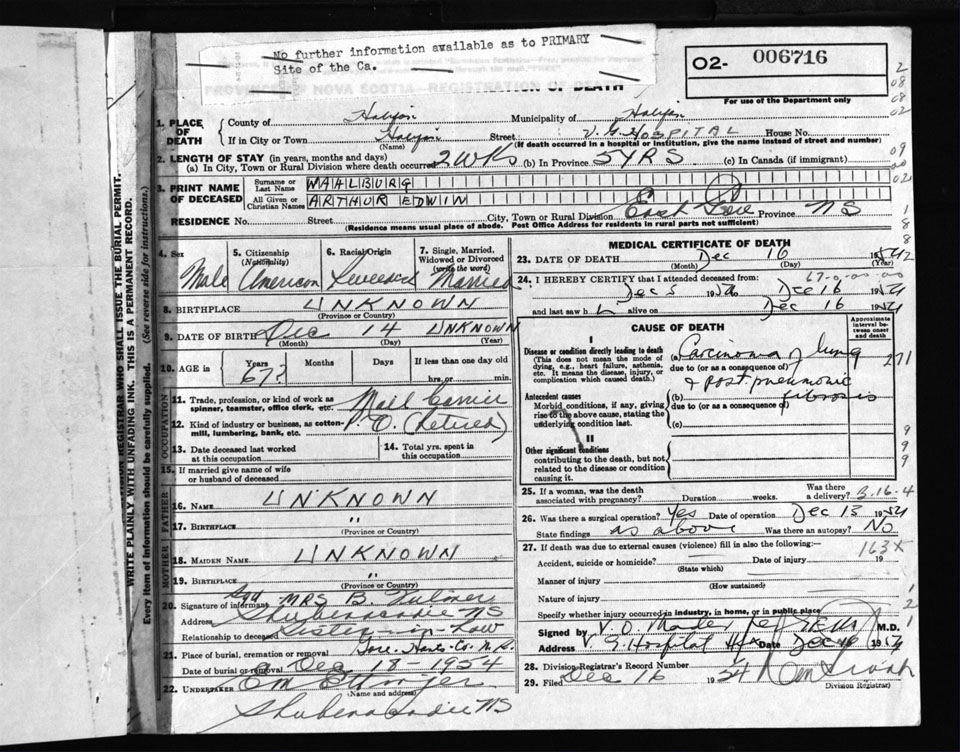 No further information available as to PRIMARY
Site of the Ca.
PROVINCE OF NOVA SCOTIA—REGISTRATION OF DEATH
O2- 006716
For use of the Department only
WRITE PLAINLY WITH UNFADING INK. THIS IS A PERMANENT RECORD.
Every item of information should be carefully supplied. (See reverse side for instructions.)
REGISTRAR WHO SHALL ISSUE THE BURIAL PERMIT.
1. PLACE OF DEATH
County of Halifax Municipality of Halifax
If in City or Town Halifax Street V.G. HOSPITAL House No.
(Name) (If death occurred in a hospital or institution, give the name instead of street and number)
2. LENGTH OF STAY (in years, months and days)
(a) In City, Town or Rural Division where death occurred 2 WKS (b) In Province 5 YRS (c) In Canada (if immigrant)
3. PRINT NAME OF DECEASED
Surname or Last Name MAHLBURG
All Given or Christian Names ARTHUR EDWIN
RESIDENCE No. Street City, Town or Rural Division East Gore Province NS
(Residence means usual place of abode. Post Office Address for residents in rural parts not sufficient)
4. Sex Male
5. Citizenship (Nationality) American
6. Racial Origin
7. Single, Married, Widowed or Divorced (write the word) Married
8. BIRTHPLACE UNKNOWN
(Province or Country)
9. DATE OF BIRTH Dec 14 UNKNOWN
(Month) (Day) (Year)
10. AGE in Years 67? Months Days If less than one day old hrs. or min.
OCCUPATION
11. Trade, profession, or kind of work as spinner, teamster, office clerk, etc. Mail Carrier
12. Kind of industry or business, as cotton-mill, lumbering, bank, etc. P.O. (Retired)
13. Date deceased last worked at this occupation
14. Total yrs. spent in this occupation
15. If married give name of wife or husband of deceased
FATHER
16. NAME UNKNOWN
17. BIRTHPLACE "
(Province or Country)
MOTHER
18. MAIDEN NAME UNKNOWN
19. BIRTHPLACE "
(Province or Country)
20. Signature of informant MRS B.
Address Shubenacadie NS
Relationship to deceased Sister-in-Law
21. Place of burial, cremation or removal Gore, Hants Co. N.S.
Date of burial or removal Dec 18-1954
22. UNDERTAKER
(Name and address)
Shubenacadie NS
MEDICAL CERTIFICATE OF DEATH
23. DATE OF DEATH Dec 16 1954
(Month) (Day) (Year)
24. I HEREBY CERTIFY that I attended deceased from:
Dec 5 1954 to Dec 16 1954
and last saw h alive on Dec 16 1954
CAUSE OF DEATH
Approximate interval between onset and death
I
Disease or condition directly leading to death
(This does not mean the mode of dying, e.g., heart failure, asthenia, etc. It means the disease, injury, or complication which caused death.)
(a) Carcinoma of lung
due to (or as a consequence of)
& post pneumonic fibrosis
Antecedent causes
Morbid conditions, if any, giving rise to the above cause, stating the underlying condition last.
(b)
due to (or as a consequence of)
(c)
II
Other significant conditions
contributing to the death, but not related to the disease or condition causing it.
25. If a woman, was the death associated with pregnancy? Duration weeks. Was there a delivery? 3.16-4
26. Was there a surgical operation? Yes Date of operation Dec 13 1954
State findings as above Was there an autopsy? No
27. If death was due to external causes (violence) fill in also the following:— 163X
Accident, suicide or homicide? Date of injury 19
(State which)
Manner of injury
(How sustained)
Nature of injury
Specify whether injury occurred in industry, in home, or in public place
Signed by V. O. Mader M.D.
Address V. G. Hospital Hfx Date Dec 16 1954
28. Division Registrar's Record Number
29. Filed Dec 16 1954
(Division Registrar)